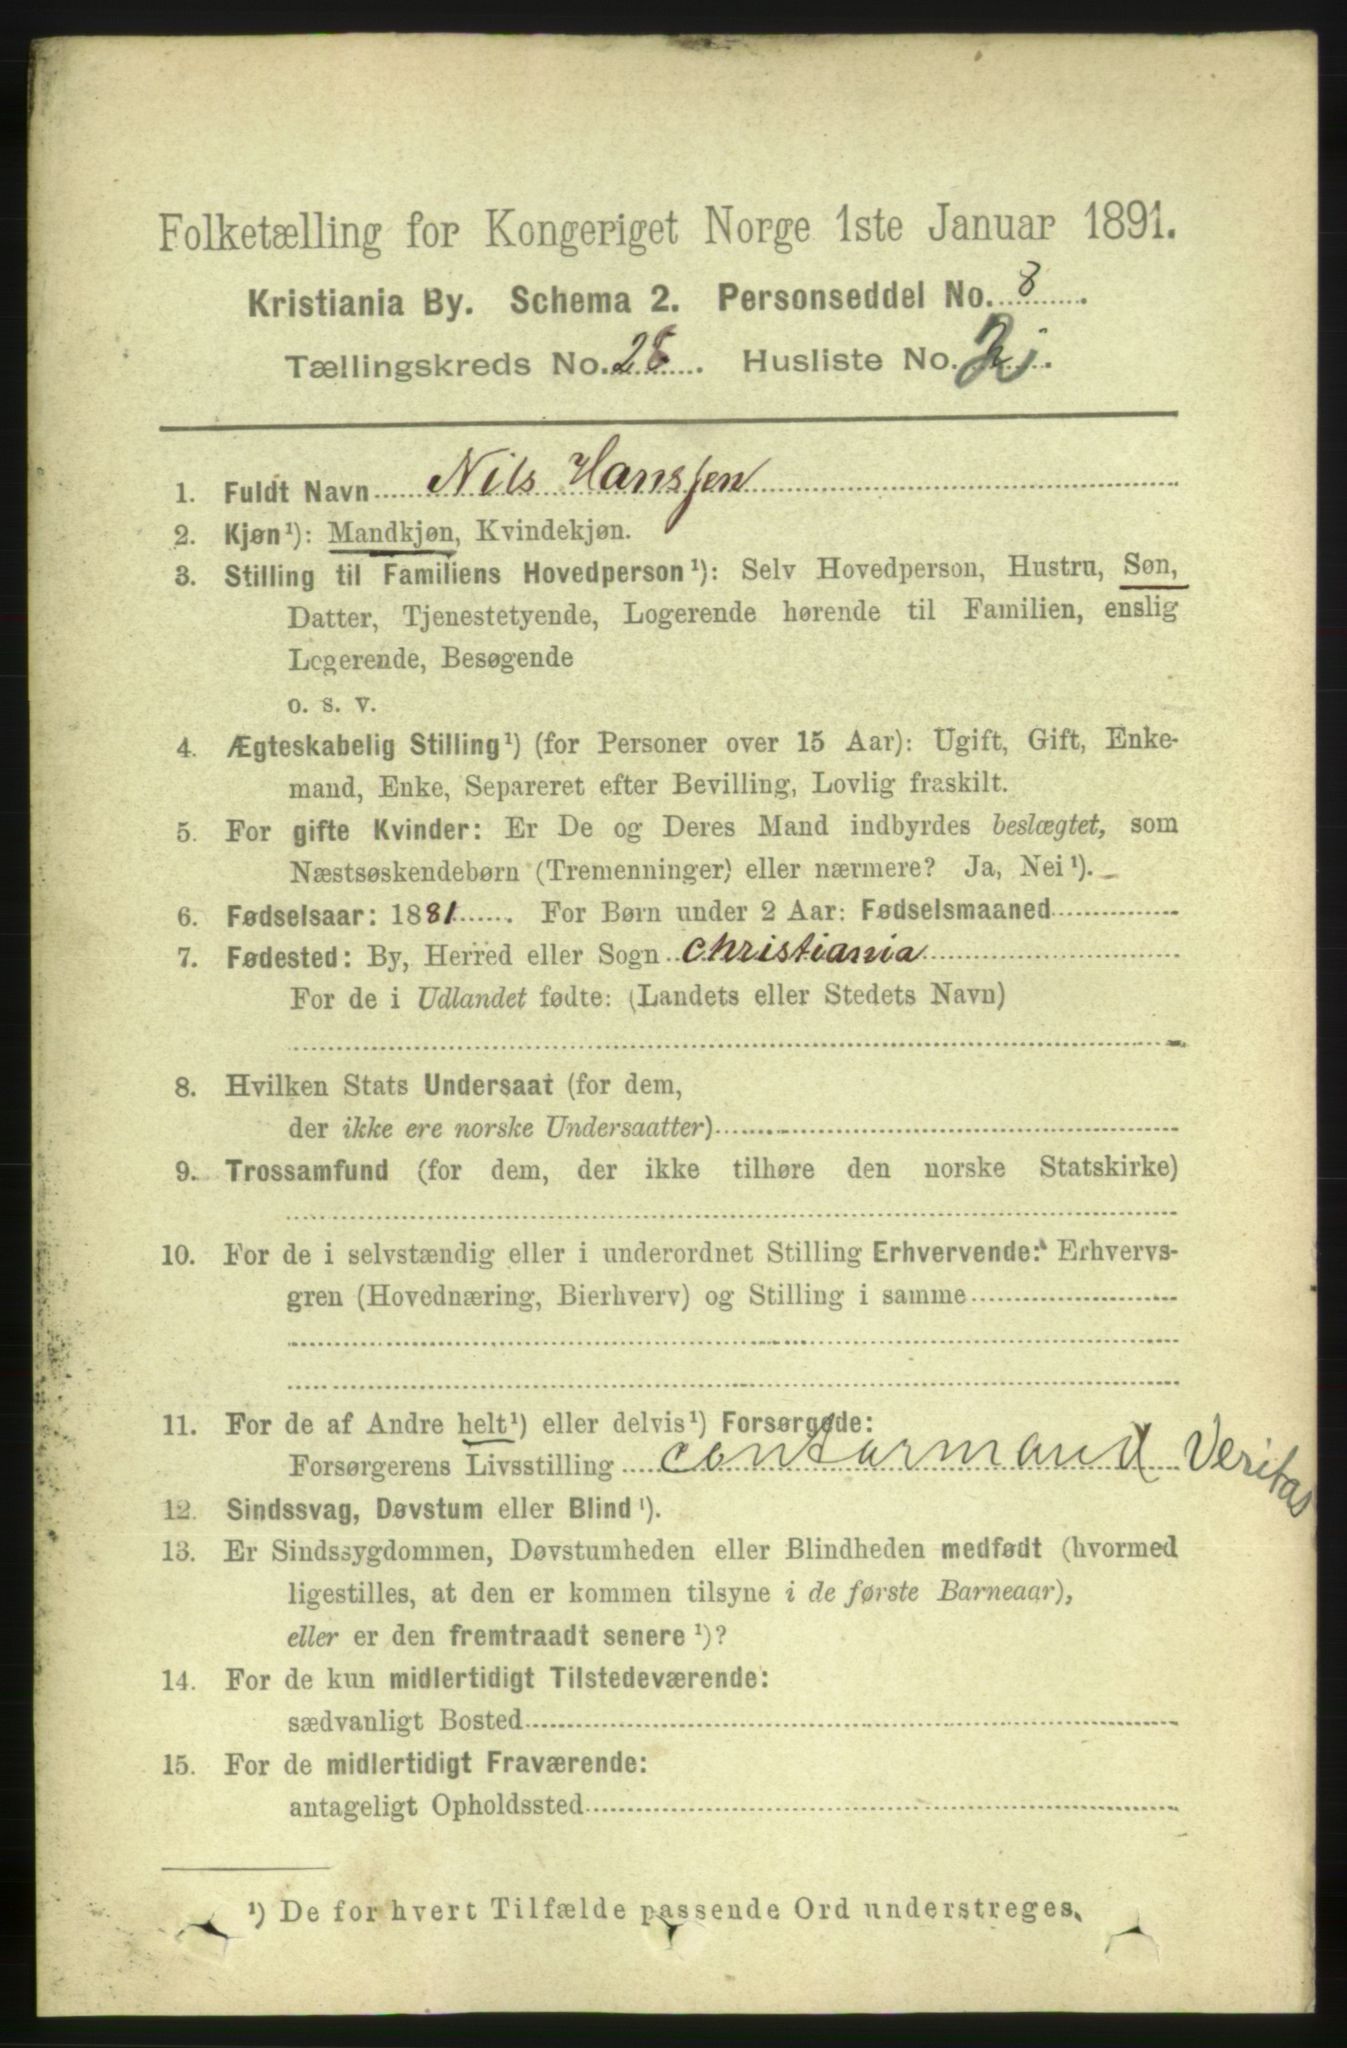 Folketælling for Kongeriget Norge 1ste Januar 1891.
Kristiania By. Schema 2. Personseddel No. 8.
Tællingskreds No. 28. Husliste No.
1. Fuldt Navn Nils Hanssen
2. Kjøn¹): Mandkjøn, Kvindekjøn.
3. Stilling til Familiens Hovedperson¹): Selv Hovedperson, Hustru, Søn,
Datter, Tjenestetyende, Logerende hørende til Familien, enslig
Logerende, Besøgende
o. s. v.
4. Ægteskabelig Stilling¹) (for Personer over 15 Aar): Ugift, Gift, Enke-
mand, Enke, Separeret efter Bevilling, Lovlig fraskilt.
5. For gifte Kvinder: Er De og Deres Mand indbyrdes beslægtet, som
Næstsøskendebørn (Tremenninger) eller nærmere? Ja, Nei¹).
6. Fødselsaar: 1881. For Børn under 2 Aar: Fødselsmaaned
7. Fødested: By, Herred eller Sogn christiania
For de i Udlandet fødte: (Landets eller Stedets Navn)
8. Hvilken Stats Undersaat (for dem,
der ikke ere norske Undersaatter)
9. Trossamfund (for dem, der ikke tilhøre den norske Statskirke)
10. For de i selvstændig eller i underordnet Stilling Erhvervende: Erhvervs-
gren (Hovednæring, Bierhverv) og Stilling i samme
11. For de af Andre helt¹) eller delvis¹) Forsørgede:
Forsørgerens Livsstilling contormand Veritas
12. Sindssvag, Døvstum eller Blind¹).
13. Er Sindssygdommen, Døvstumheden eller Blindheden medfødt (hvormed
ligestilles, at den er kommen tilsyne i de første Barneaar),
eller er den fremtraadt senere¹)?
14. For de kun midlertidigt Tilstedeværende:
sædvanligt Bosted
15. For de midlertidigt Fraværende:
antageligt Opholdssted
¹) De for hvert Tilfælde passende Ord understreges.